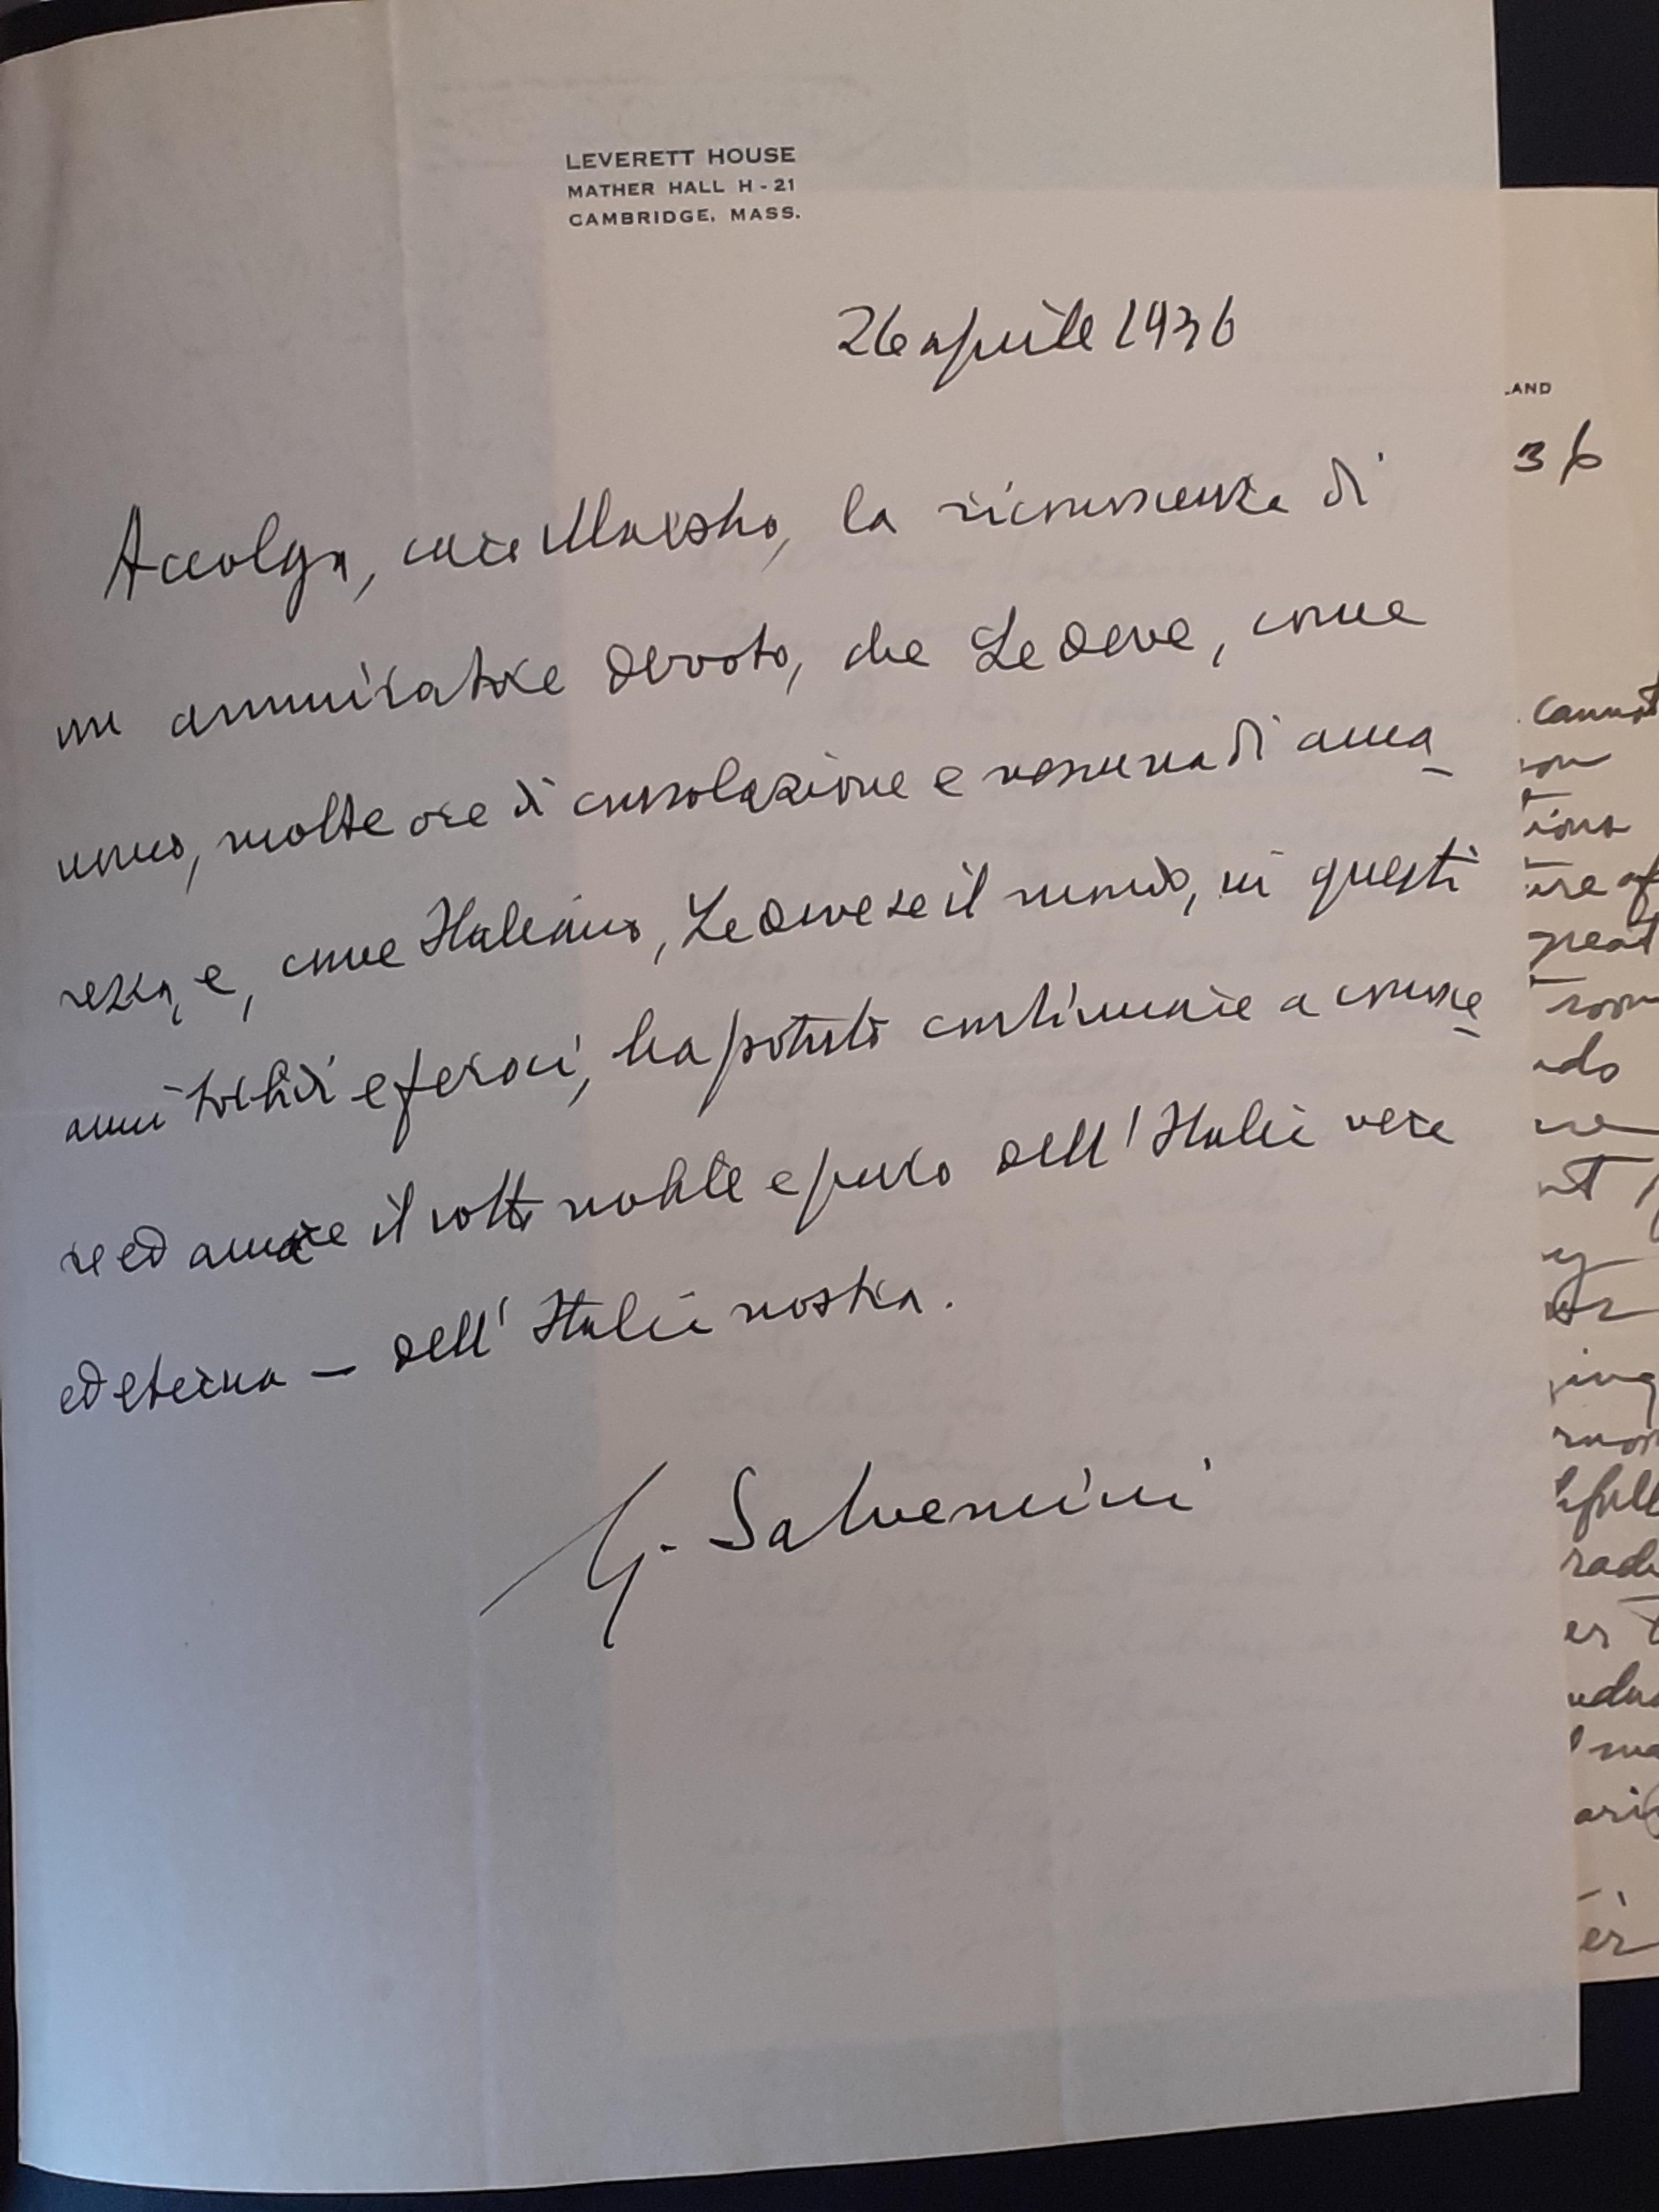 LEVERETT HOUSE
MATHER HALL H - 21
CAMBRIDGE, MASS.
26 aprile 1936
Accolga, caro Maestro, la riconoscenza di
un ammiratore devoto, che Le deve, come
uomo, molte ore di consolazione e nessuna di ama-
rezza, e, come Italiano, Le deve se il mondo, in questi
anni torbidi e feroci, ha potuto continuare a conosce-
re ed amare il volto nobile e puro dell'Italia vera
ed eterna — dell'Italia nostra.
G. Salvemini
LAND
36
cannot
great
ado